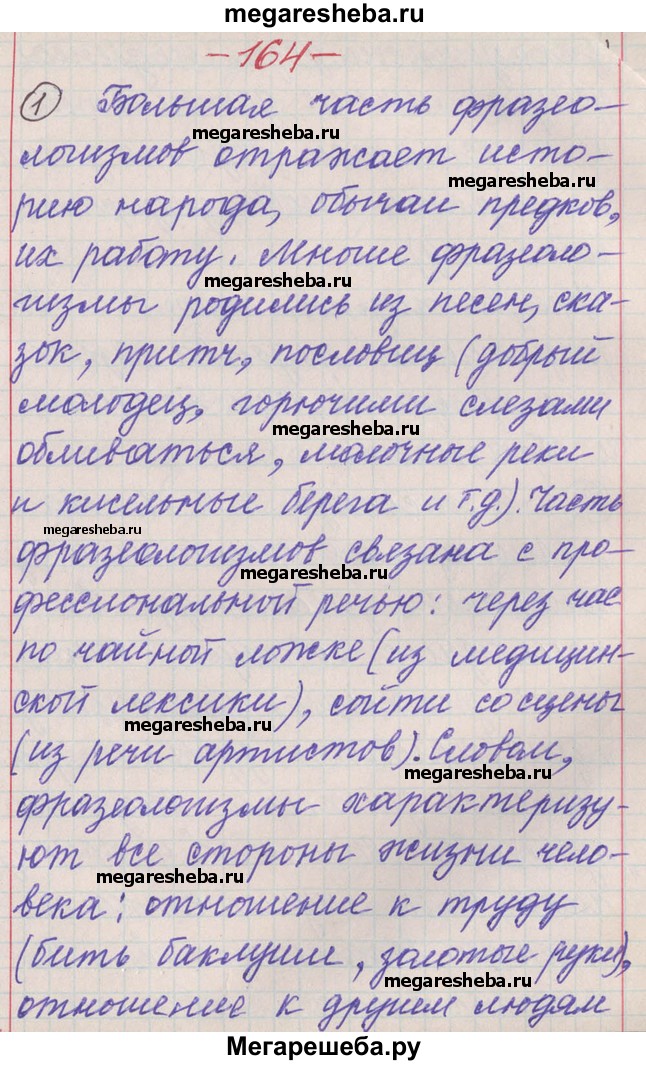 megaresheba.ru
-164-
① Большая часть фразео-
megaresheba.ru
логизмов отражает исто-
megaresheba.ru
рию народа, обычаи предков,
их работу. Многие фразеоло-
megaresheba.ru
гизмы родились из песен, ска-
зок, притч, пословиц (добрый
молодец, горючими слезами
megaresheba.ru
обливаться, молочные реки
и кисельные берега и т.д.). Часть
megaresheba.ru
фразеологизмов связана с про-
megaresheba.ru
фессиональной речью: через час
по чайной ложке (из медицин-
ской лексики), сойти со сцены
megaresheba.ru
(из речи артистов). Словом,
megaresheba.ru
фразеологизмы характеризу-
ют все стороны жизни чело-
megaresheba.ru
века: отношение к труду
(бить баклуши, золотые руки),
megaresheba.ru
отношение к другим людям
Мегарешеба.ру